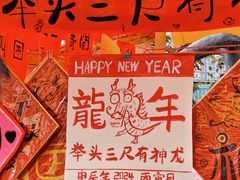 举头三尺有神
HAPPY NEW YEAR
龍年
举头三尺有神龙
甲辰年 2024 丙寅月